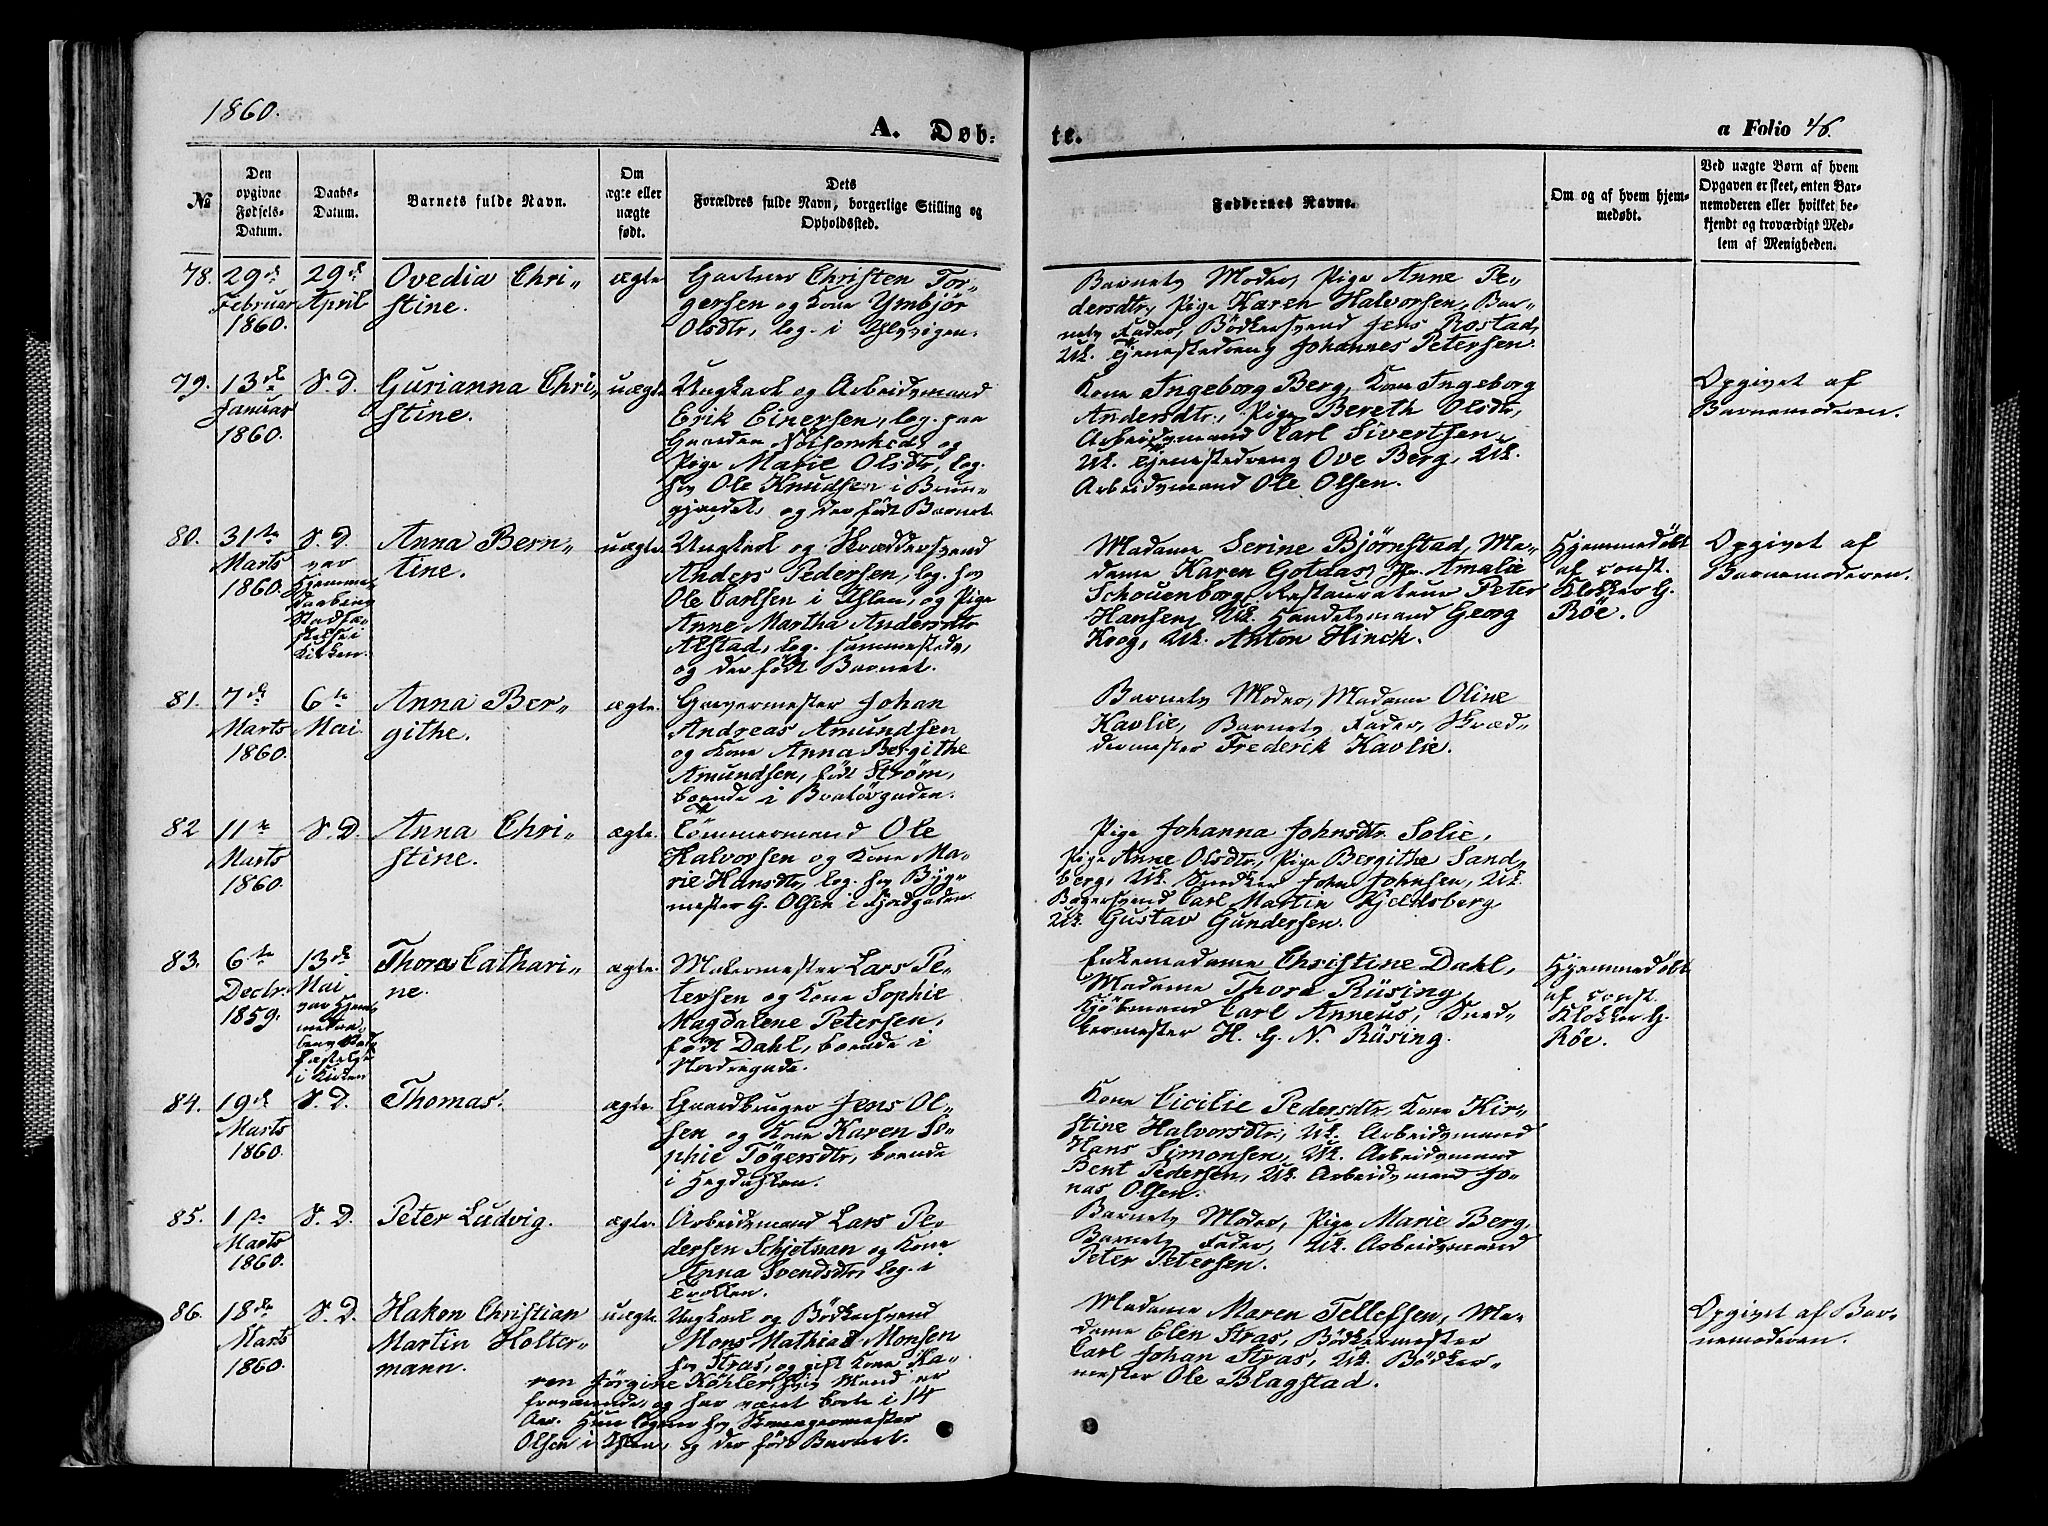 1860.
A. Døb-
te.
a Folio 46.
№
Den opgivne Fødsels-Datum.
Daabs-Datum.
Barnets fulde Navn.
Om ægte eller uægte født.
Dets Forældres fulde Navn, borgerlige Stilling og Opholdssted.
Faddernes Navne.
Om og af hvem hjemmedøbt.
Ved uægte Børn af hvem Opgaven er skeet, enten Barnemoderen eller hvilket bekjendt og troværdigt Medlem af Menigheden.
78. 29de Februar 1860.
29de April
Ovedia Chri-
stine.
ægte
Gartner Christen Tor-
gersen og Kone Ymbjør
Olsdtr, log. i Ihlvigen.
Barnets Moder, Pige Anne Pe-
dersdtr, Pige Karen Halvorsen, Bar-
nets Fader, Bødkersvend Jens Rostad,
Uk. Tjenestedreng Johannes Petersen.
79. 13de Januar 1860.
S. D.
Gurianna Chri-
stine.
uægte
Ungkarl og Arbeidsmand
Erik Einersen, log. paa
Gaarden Nøisomhed, og
Pige Marie Olsdtr, log.
hos Ole Knudsen i Brun-
gjerdet, og der født Barnet.
Kone Ingeborg Berg, Kone Ingeborg
Andersdtr, Pige Bereth Olsdtr,
Arbeidsmand Carl Sivertsen,
Uk. Tjenestedreng Ove Berg, Uk.
Arbeidsmand Ole Olsen.
Opgivet af
Barnemoderen.
80. 31te Marts 1860.
S. D.
var
Hjemme-
Daabens
Stadfæ-
stelse i
Kirken.
Anna Bern-
tine.
uægte.
Ungkarl og Skræddersvend
Anders Pedersen, log. hos
Ole Carlsen i Ihlen, og Pige
Anne Martha Andersdtr
Alstad, log. sammesteds,
og der født Barnet.
Madame Serine Bjørnstad, Ma-
dame Karen Gotaas, Jfr. Amalie
Schouenborg, Restaurateur Peter
Hansen, Uk. Handelsmand Georg
Koog, Uk. Anton Hinch.
Hjemmedøbt
af const.
Klokker G.
Røe.
Opgivet af
Barnemoderen.
81. 7de Marts 1860.
6te Mai.
Anna Ber-
githe.
ægte.
Garvermester Johan
Andreas Amundsen
og Kone Anna Bergithe
Amundsen, født Strøm,
boende i Bratørgaden.
Barnets Moder, Madame Oline
Kavlie, Barnets Fader, Skræd-
dermester Frederik Kavlie.
82 11te Marts 1860.
S. D.
Anna Chri-
stine.
ægte.
Tømmermand Ole
Halvorsen og Kone Ma-
rie Hansdtr, log. hos Byg-
mester G. Olsen i Fjordgaden.
Pige Johanna Johnsdtr Solie,
Pige Anne Olsdtr, Pige Bergithe Sand-
berg, Uk. Snedker John Johnsen, Uk.
Bagersvend Carl Martin Kjeldsberg
Uk. Gustav Gundersen.
83. 6te Decbr. 1859.
13de
Mai
Thora Cathari-
ne.
ægte.
Malermester Lars Pe-
tersen og Kone Sophie
Magdalene Petersen,
født Dahl, boende i
Nordregade.
Enkemadame Christine Dahl,
Madame Thora Rüsing,
Kjøbmand Carl Annæus, Sned-
kermester H. G. N. Rüsing.
Hjemmedøbt
af const.
Klokker G.
Røe.
84. 19de Marts 1860.
S. D.
Thomas.
ægte.
Gaardbruger Jens Ol-
sen og Kone Karen So-
phie Tøgersdtr, boende
i Hegdahlen.
Kone Cicilie Pedersdtr, Kone Kir-
stine Halvorsdtr, Uk. Arbeidsmand
Hans Simonsen, Uk. Arbeidsmand
Bent Pedersen, Uk. Arbeidsmand Jo-
nas Olsen.
85. 1ste Marts 1860.
S. D.
Peter Ludvig.
ægte.
Arbeidsmand Lars Pe-
dersen Schjetnan og Kone
Anna Svendsdtr, log. i
Trollen.
Barnets Moder, Pige Marie Berg,
Barnets Fader, Uk. Arbeidsmand
Peter Petersen.
86. 18de Marts 1860.
S. D.
Hakon Christian
Martin Holter-
mann.
uægte.
Ungkarl og Bødkersvend
Mons Mathias Monsen
hos Stras, og gift Kone Ka-
ren Jørgine Köhler, hvis Mand er
fraværende, og har været borte i 14
Aar. Hun logerer hos
Olsen i Ihlen, og der født Barnet.
Madame Maren Tellefsen, Ma-
dame Elen Stras, Bødkermester
Carl Johan Stras, Uk. Bødker-
mester Ole Blagstad.
Opgivet af Bar-
nemoderen.